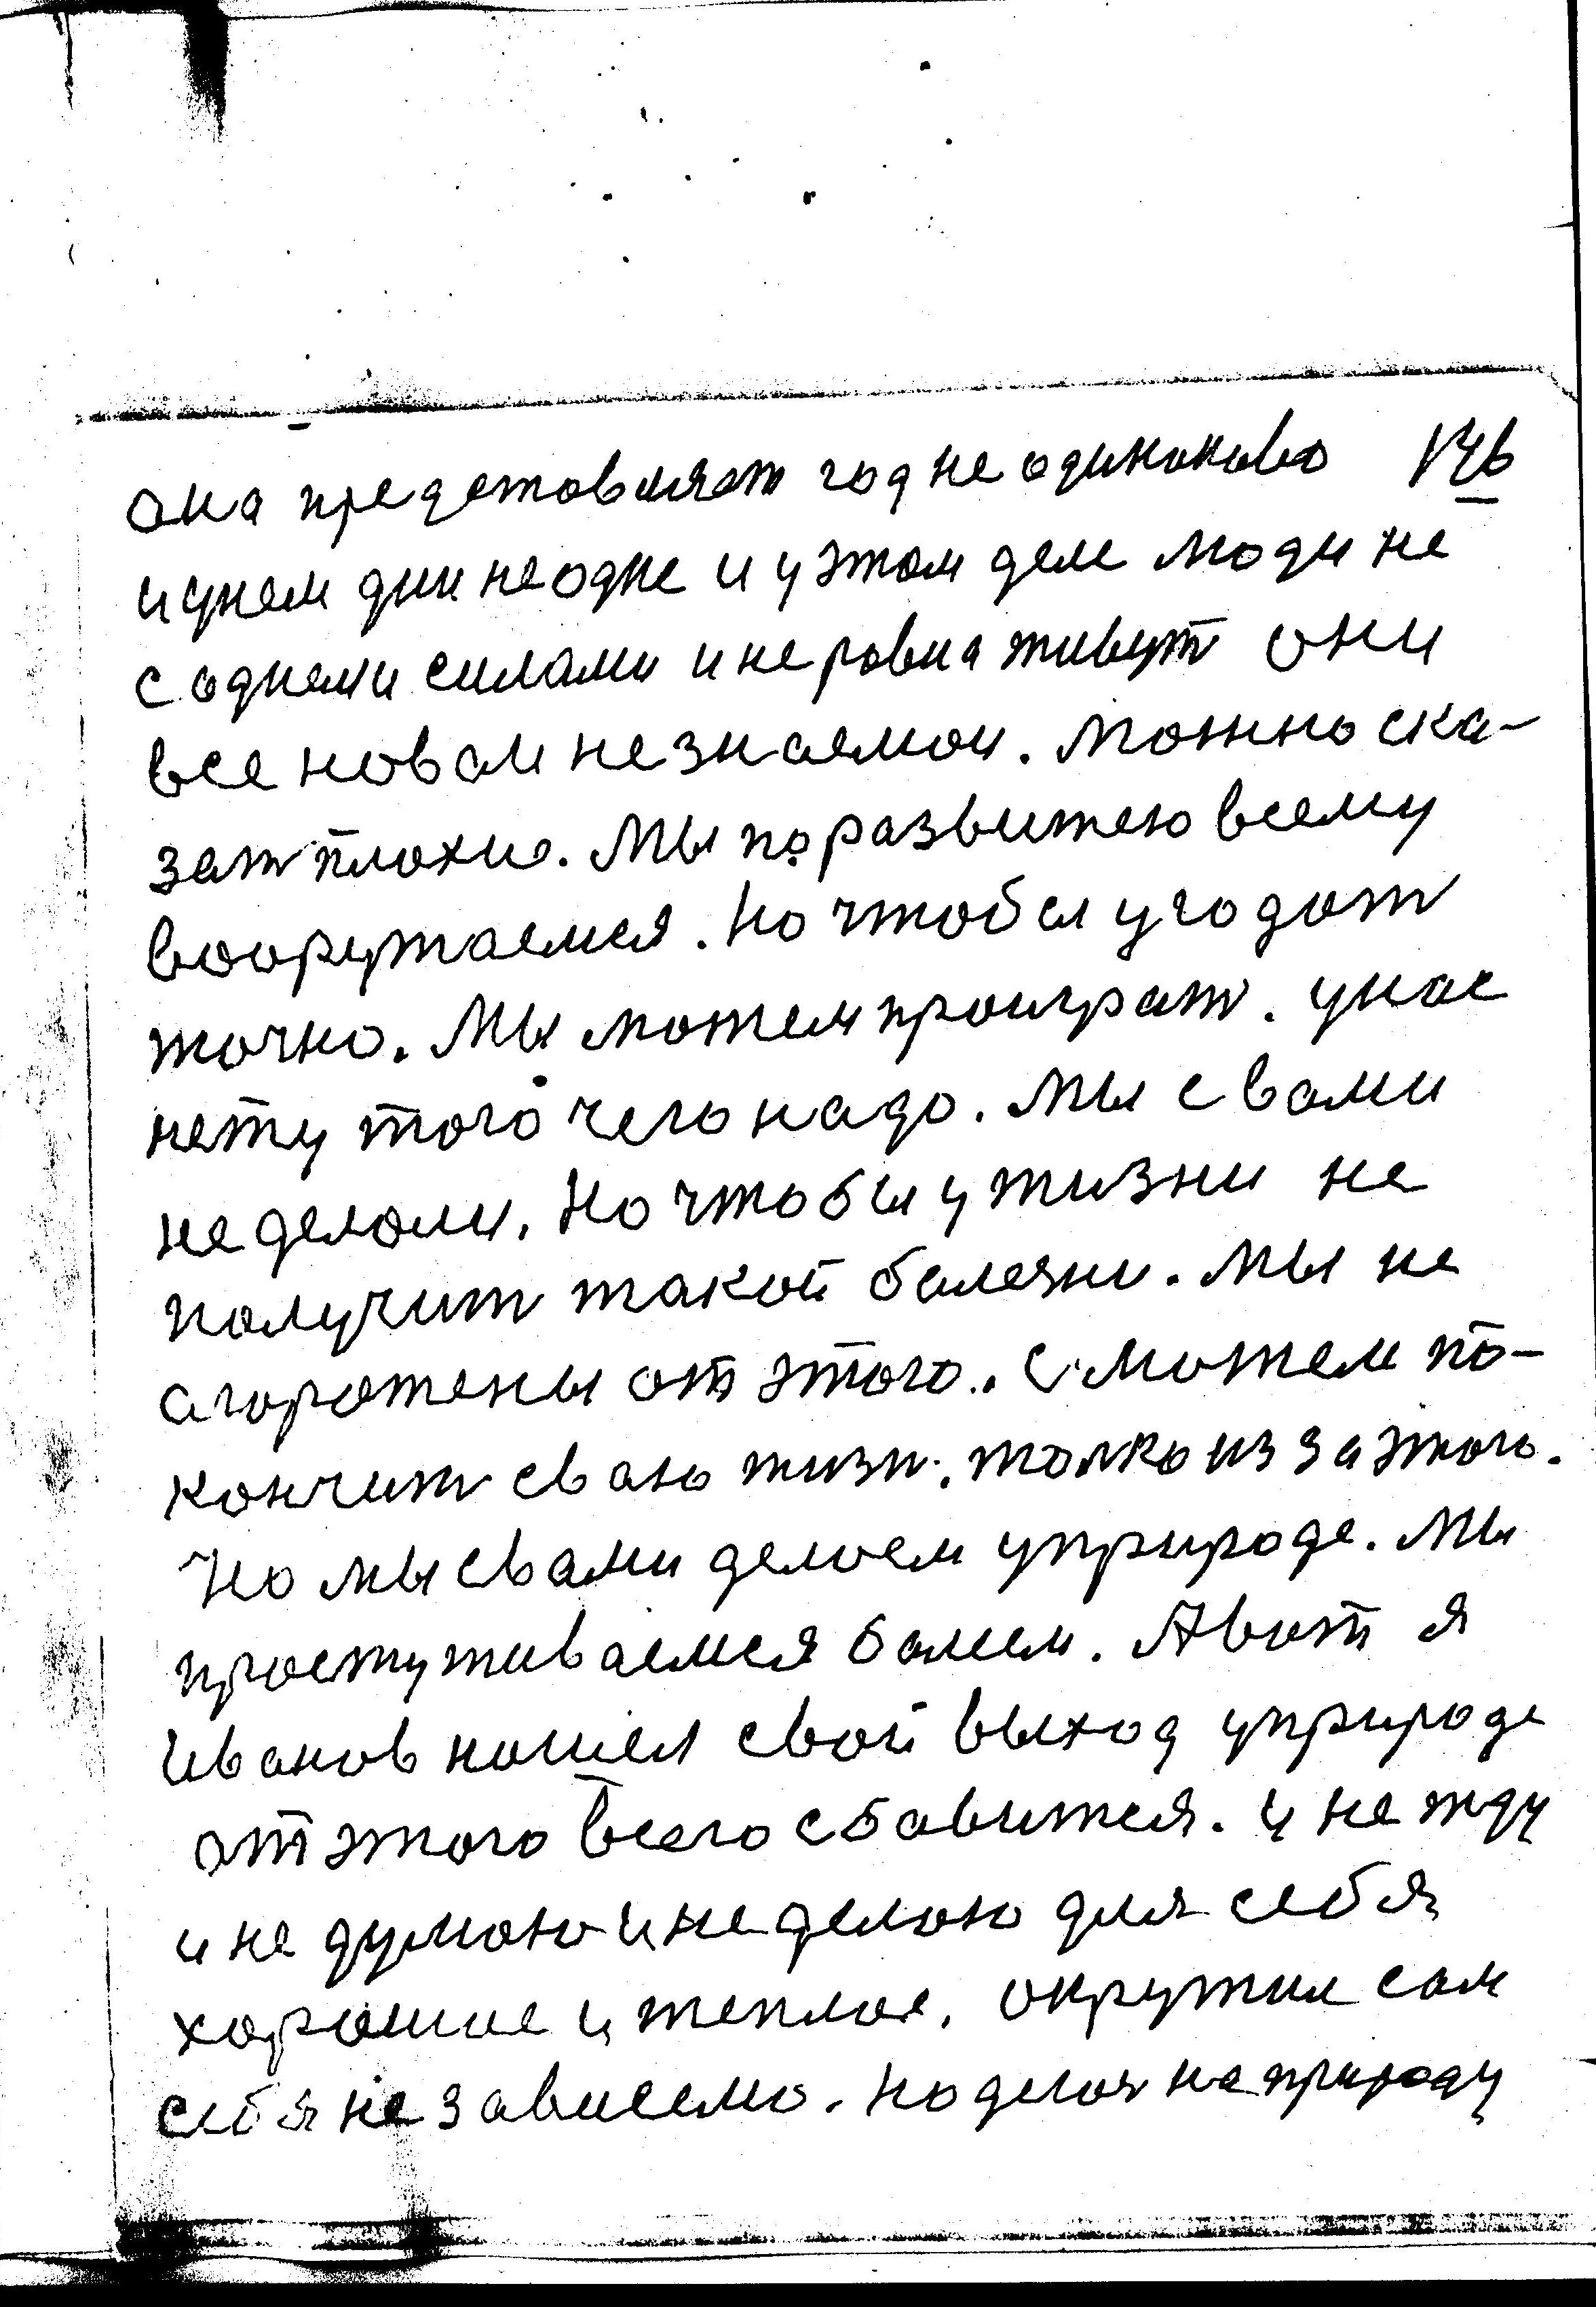 она предетовляет год не одинаково 146
и унем дни не одне и у этом деле люди не
с однеми силами и не ровна живут они
все новом не знаемои. Можно ска-
зат плохие. Мы по развитею всему
вооружаемся. Но чтобы угодат
точно. Мы можем проиграт. унас
нету того чего надо. Мы с вами
не делали. Но чтобы у жизни не
получит такой болезни. Мы не
агорожены от этого. Можем по-
кончит сваю жизн. толко из за этого.
Но мы свами делаем уприроде. Мы
простуживаемся болеем. А вот я
Иванов нашел свой выход уприроде
от этого всего сбавится. и не жду
и не думаю и не делаю для себя
хорошие и теплое. окружил сам
себя не зависемо. но делая на природу